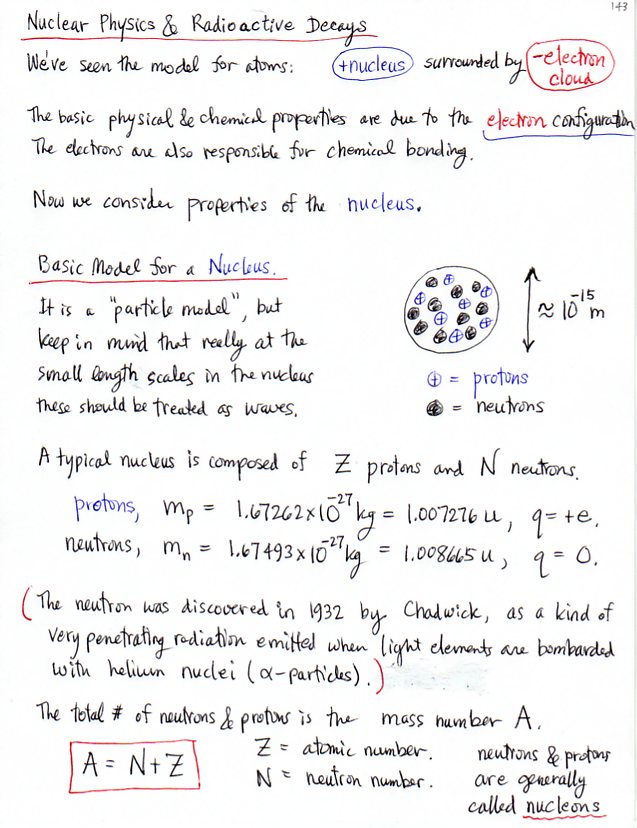 143
Nuclear Physics & Radioactive Decays
We've seen the model for atoms: +nucleus surrounded by -electron cloud
The basic physical & chemical properties are due to the electron configuration
The electrons are also responsible for chemical bonding.
Now we consider properties of the nucleus.
Basic Model for a Nucleus.
It is a "particle model", but
keep in mind that really at the
small length scales in the nucleus
these should be treated as waves.
≈ 10⁻¹⁵ m
⊕ = protons
= neutrons
A typical nucleus is composed of Z protons and N neutrons.
protons, mₚ = 1.67262×10⁻²⁷ kg = 1.007276 u, q = +e.
neutrons, mₙ = 1.67493×10⁻²⁷ kg = 1.008665 u, q = 0.
(The neutron was discovered in 1932 by Chadwick, as a kind of
very penetrating radiation emitted when light elements are bombarded
with helium nuclei (α-particles).)
The total # of neutrons & protons is the mass number A.
A = N+Z
Z = atomic number.
N = neutron number.
neutrons & protons
are generally
called nucleons